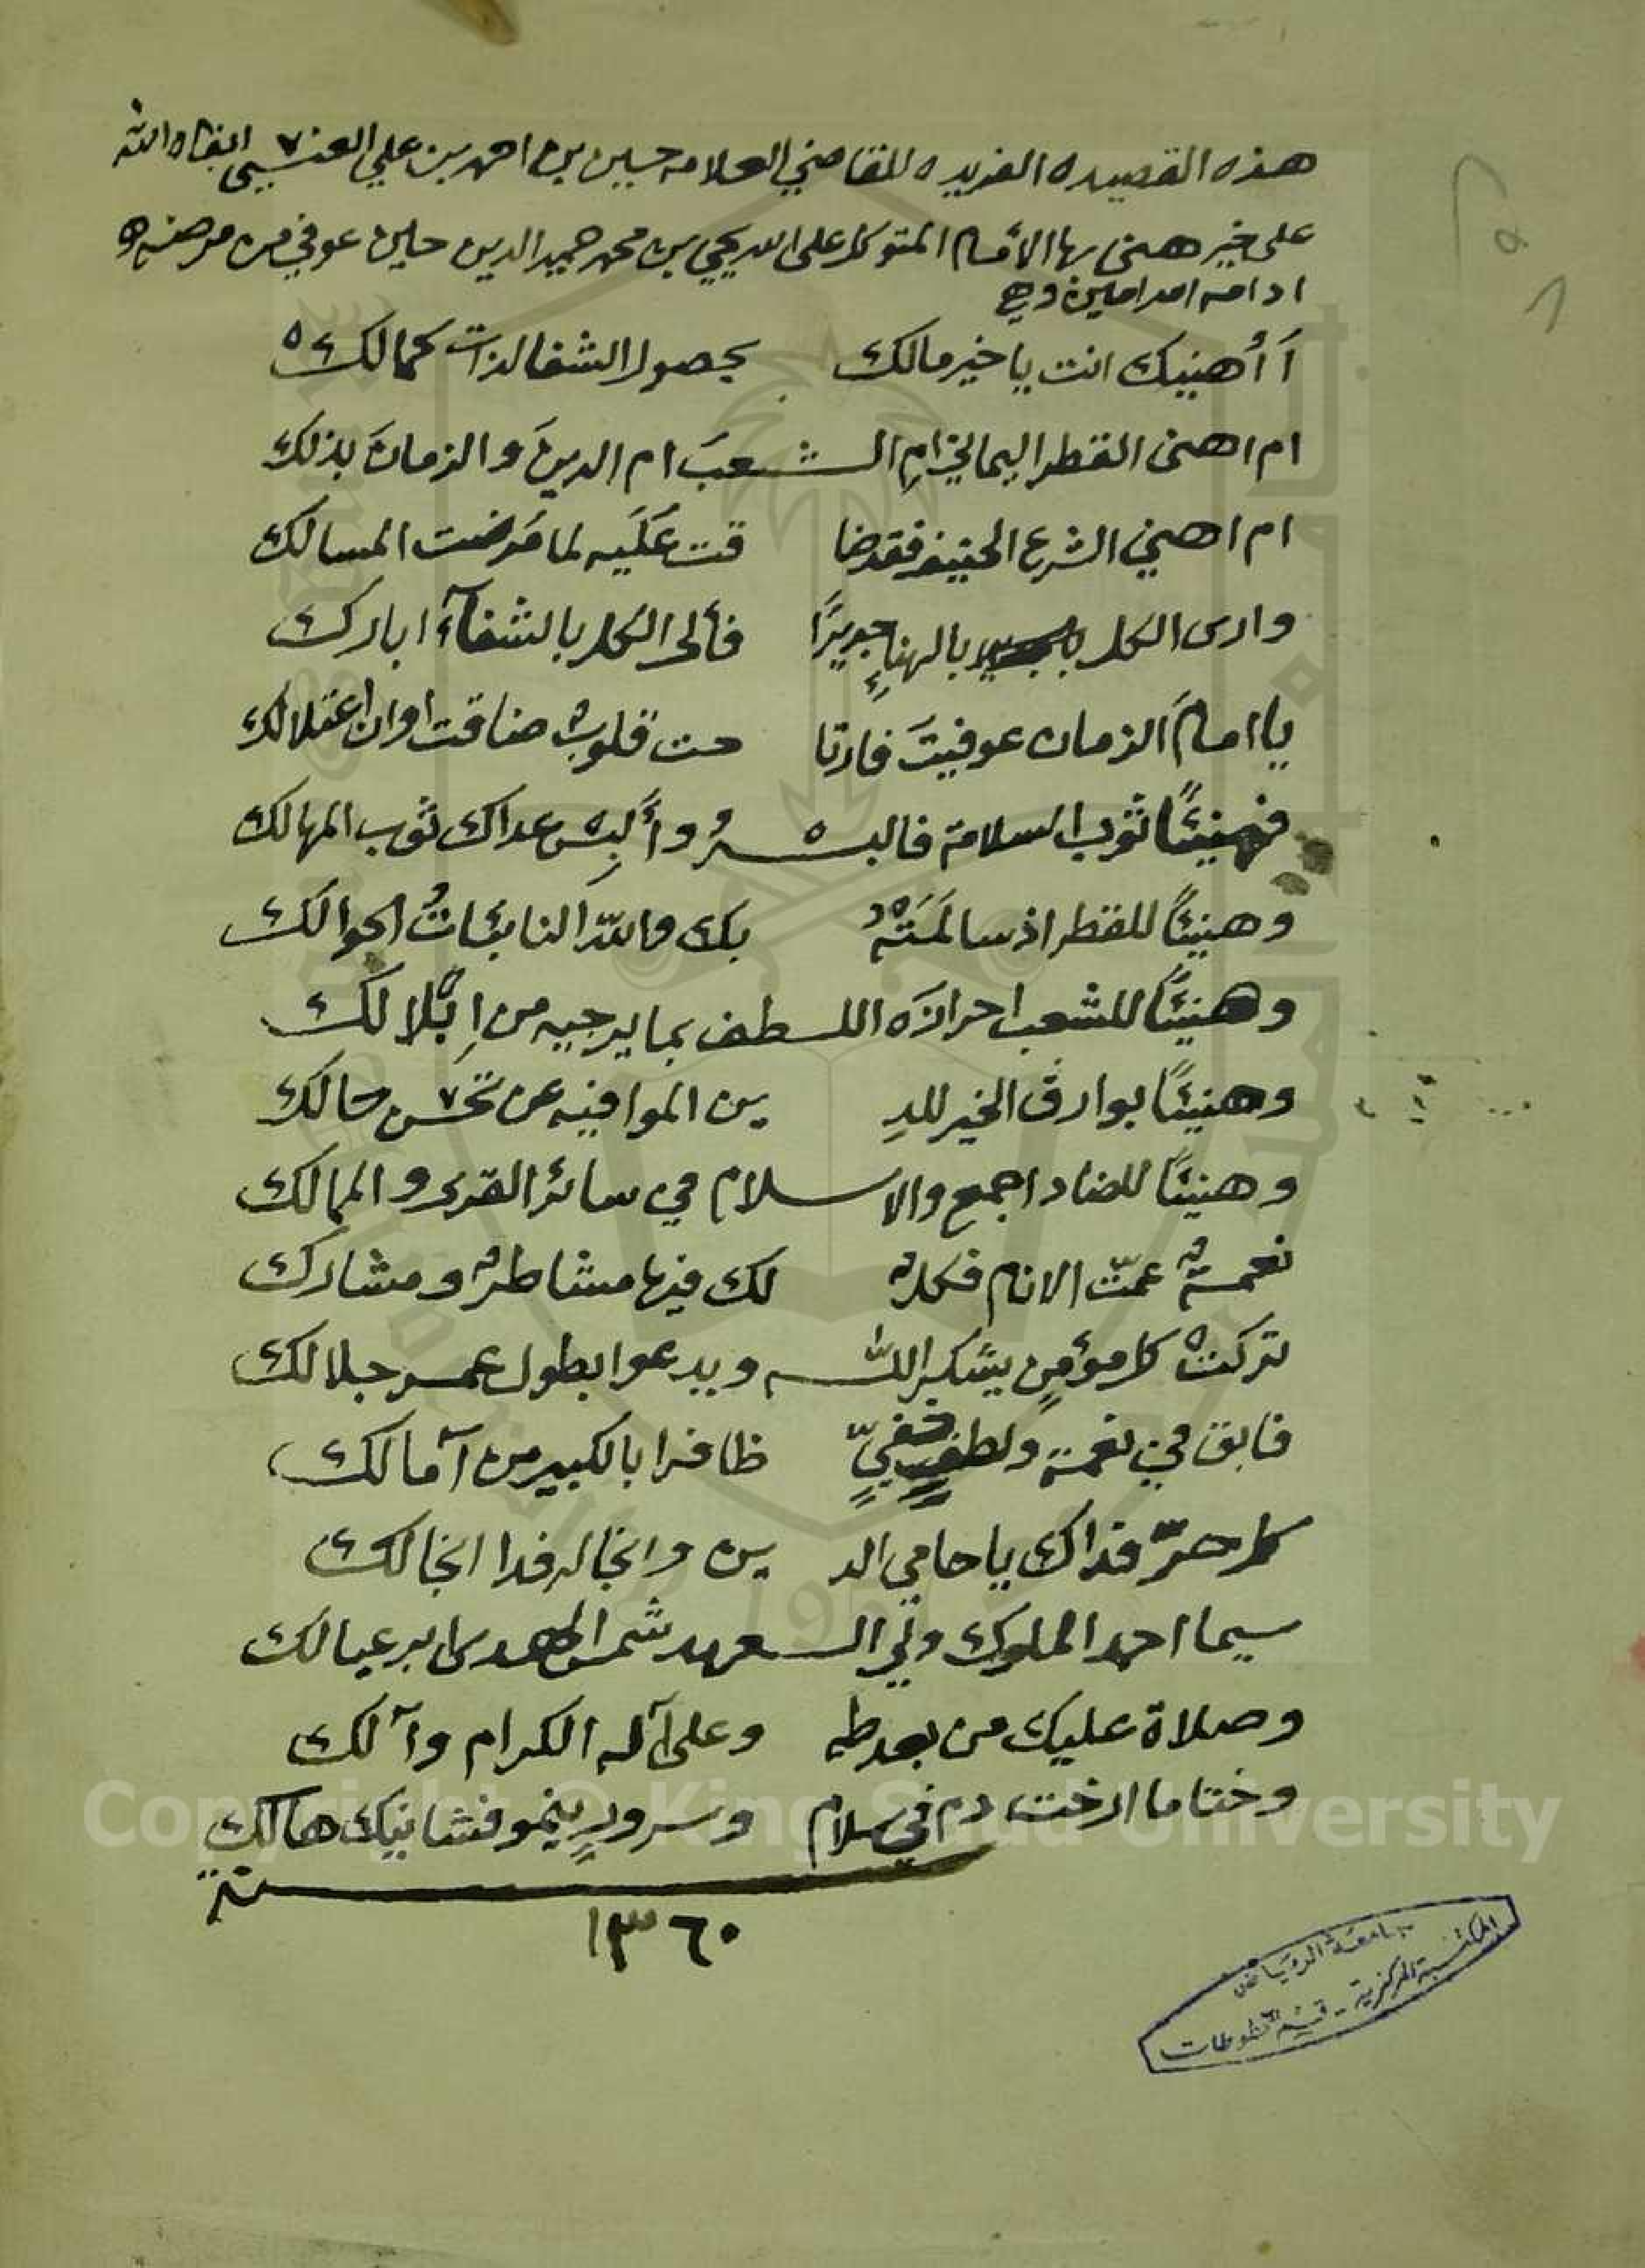 هذه القصيده الفريده للقاضي العلامه حسين بن احمد بن علي العنسي ابقاه الله
على خير هنى بها الأمام المتوكل على الله يحيى بن محمد حميد الدين حين عوفي من مرضه
ادامه الله امين وهي
أَ أُهنيك انت يا خير مالك بحصول الشفا لذات كمالك
ام اهنى القطر اليماني امِ الشعبَ ام الدينَ والزمانَ بذلك
ام اهني الشرع الحنيف فقد ضا قت عَلَيه لما مَرضت المسالك
وارى الكل بالهناءِ جديرًا فألى الكل بالشفآء ابارك
يا امامَ الزمان عوفيتَ فارتا حت قلوبٌ ضاقت اوان اعتلالك
فهنيئًا ثوب السلامة فالبسْهُ وأَلبِسْ عداك ثوب المهالك
وهنيئًا للقطر اذ سالَمَتْهُ بك والله النائباتُ الحوالك
وهنيئًا للشعب احرازَه اللطف بما يرجيه من اِبْلالك
وهنيئًا بوارق الخير للدِ ين الموافيه عن تحسن حالك
وهنيئًا للضاد اجمع والاسلام في سائر القرى والممالك
نعمةٌ عمّت الانام فكلٌ لك فيها مشاطرٌ ومشارك
تركتْ كل مؤمنٍ يشكر الله ويدعوا بطول عمر جلالك
فابق في نعمة ولطفٍ خفيٍّ ظافرا بالكبير من آمالك
كل حرّ فداك يا حامي الد ين وانجاله فدا انجالك
سيما احمد الملوك ولي العهد شمس الهدى ابر عيالك
وصلاة عليك من بعد طه وعلى آله الكرام وآلك
وختاما ارخت دم في سلام وسرورٍ ينمو فشانيك هالك
سنة
١٣٦٠
جامعة الرياض
المكتبة المركزية - قسم المخطوطات
Copyright © King Saud University